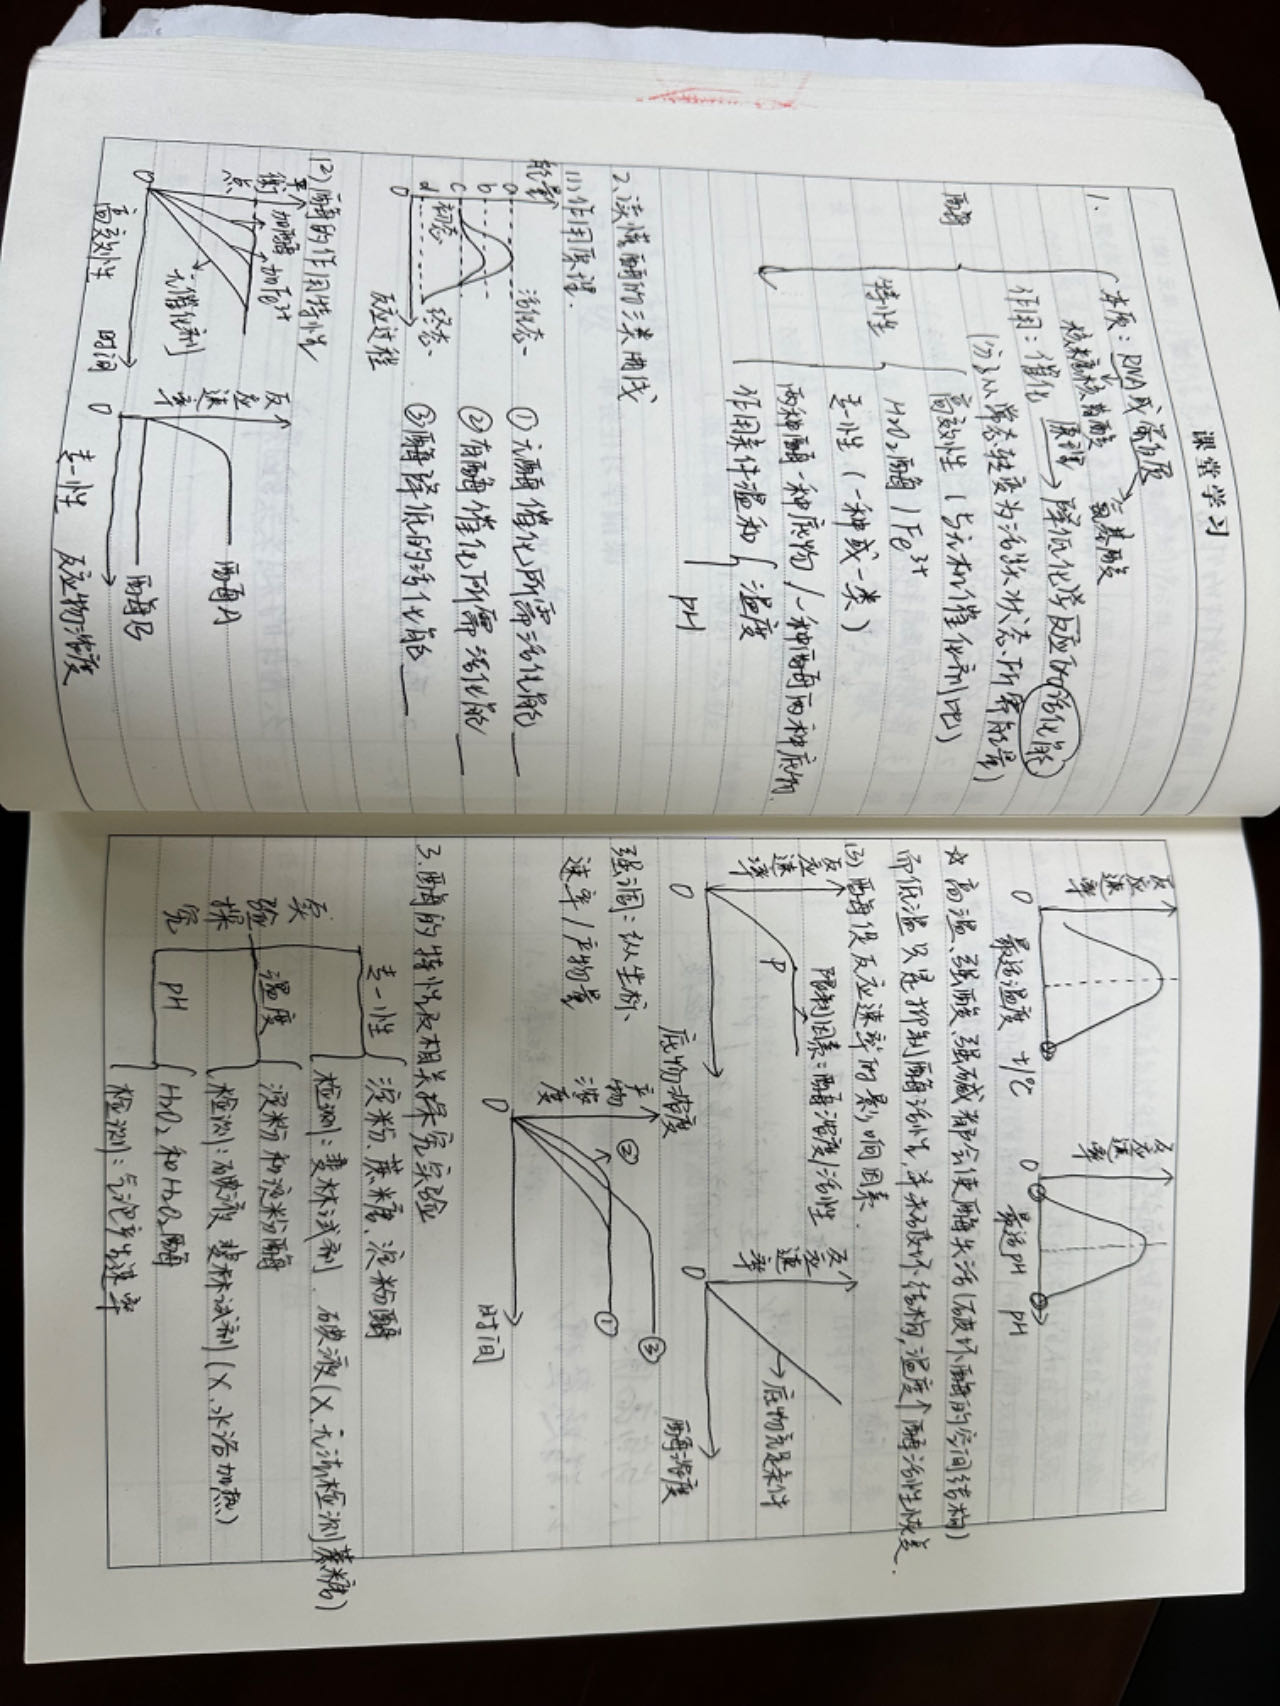 课堂学习
1.
酶
本质：RNA或蛋白质
核糖核苷酸 氨基酸
作用：催化 原理→降低化学反应的活化能
(分子从常态转变为活跃状态所需能量)
特性
高效性（与无机催化剂比）
H₂O₂酶/Fe³⁺
专一性（一种或一类）
两种酶一种底物/一种酶两种底物
作用条件温和 温度
pH
2.读懂酶的三类曲线
(1)作用原理.
能量
a
b
c
d
0
初态
活化态
终态
反应过程
①无酶催化所需活化能
②有酶催化所需活化能
③酶降低的活化能
(2)酶的作用特性
平衡点
加酶 加Fe³⁺
无催化剂
0
时间
高效性
反应速率
0
酶A
酶B
反应物浓度
专一性
反应速率
0
最适温度 t/℃
反应速率
0
最适pH pH
☆高温、强酸、强碱都会使酶失活(破坏酶的空间结构)
而低温只是抑制酶活性,并未破坏结构,温度↑酶活性恢复.
(3)酶促反应速率的影响因素.
反应速率
0
P
限制因素：酶浓度/活性
底物浓度
反应速率
0
→底物充足条件
酶浓度
强调：纵坐标、
速率/产物量
产物浓度
0
②
①
③
时间
3.酶的特性及相关探究实验
实验探究
专一性
淀粉.蔗糖、淀粉酶
检测：斐林试剂.碘液(X.无法检测蔗糖)
温度
淀粉和淀粉酶
检测：碘液 斐林试剂(X.水浴加热)
pH
H₂O₂和H₂O₂酶
检测：气泡产生速率